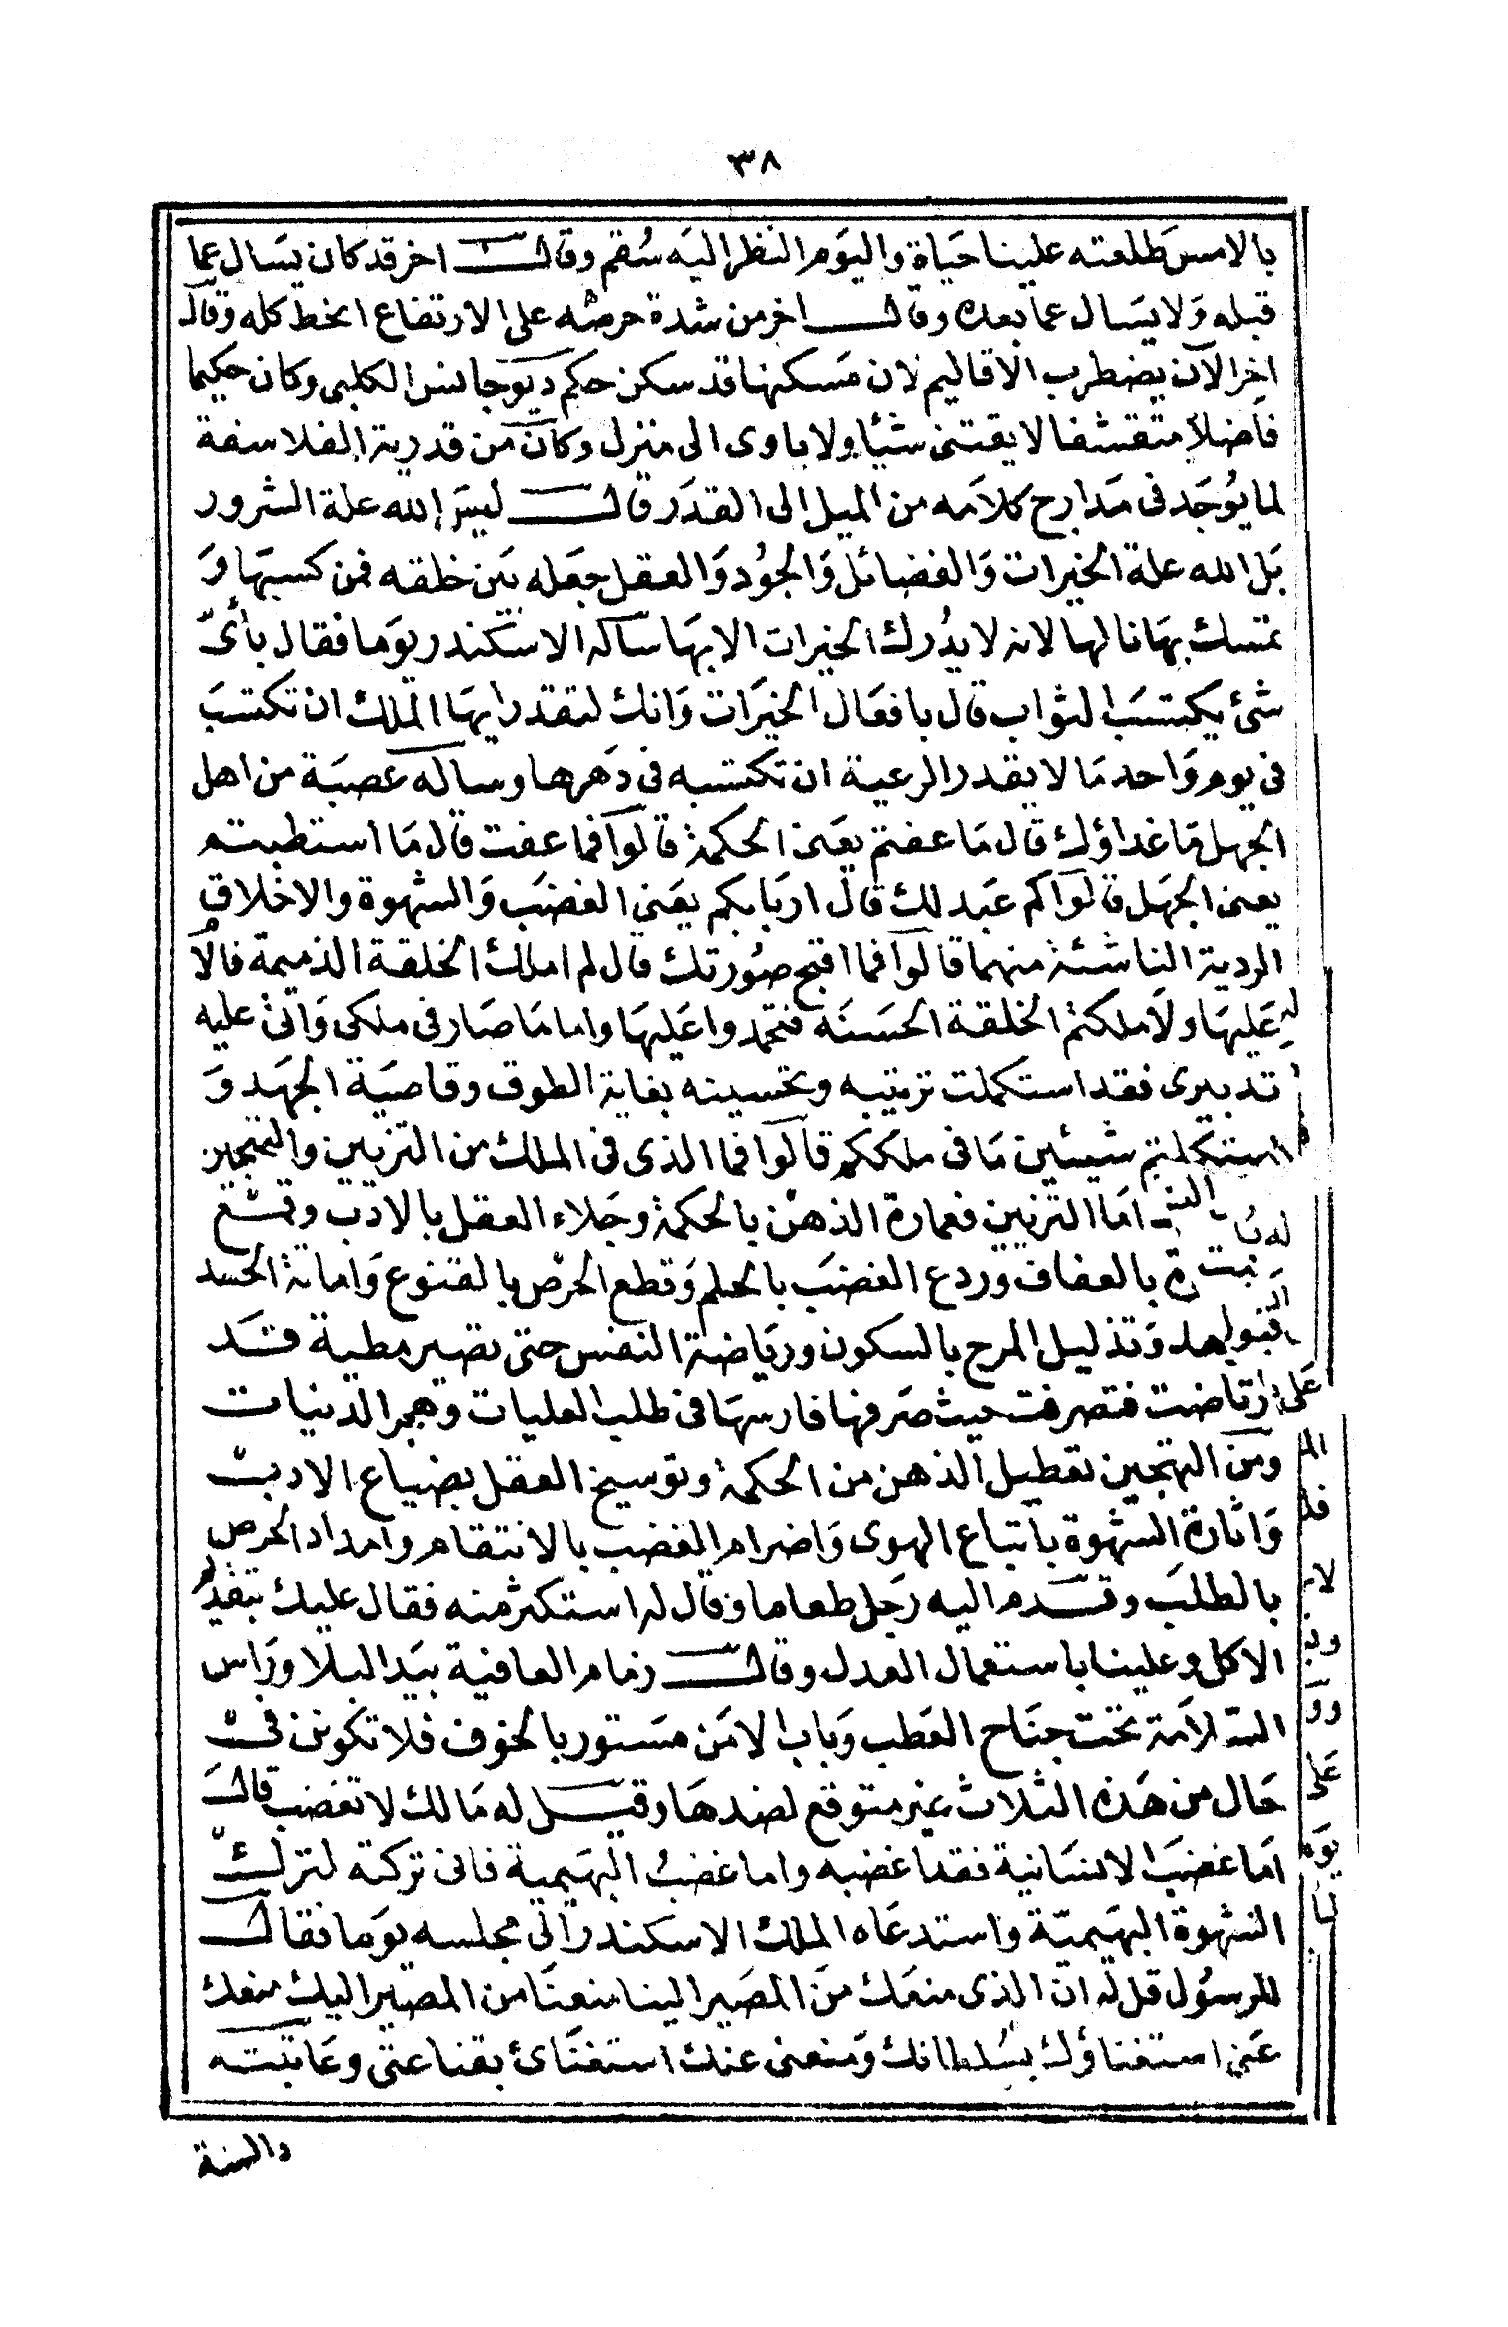 ٣٨
بالامس طلعته علينا حياة واليوم النظر اليه سقم وقال اخر قد كان يسال عما
قبله ولا يسال عما بعده وقال اخر من شدة حرصه على الارتفاع انحط كله وقال
اخر الآن يضطرب الاقاليم لان مسكنها قد سكن حكم ديوجانس الكلبى وكان حكيما
فاضلا متقشفا لا يقتنى شئا ولا ياوى الى منزل وكان من قدرية الفلاسفة
لما يوجد فى مدارج كلامه من الميل الى القدر قال ليس الله علة الشرور
بل الله علة الخيرات والفضائل والجود والعقل جعله بين خلقه فمن كسبها و
تمسك بها نالها لانه لا يدرك الخيرات الا بها ساله الاسكندر يوما فقال بأى
شئ يكتسب الثواب قال بافعال الخيرات وانك لتقدر ايها الملك ان تكتسب
فى يوم واحد ما لا يقدر الرعية ان تكتسبه فى دهرها وساله عصبة من اهل
الجهل ما غداؤك قال ما عفتم يعنى الحكمة قالوا فما عفت قال ما استطبتم
يعنى الجهل قالوا كم عبد لك قال اربابكم يعنى الغضب والشهوة والاخلاق
الردية الناشئة منهما قالوا فما اقبح صورتك قال لم املك الخلقة الذميمة فالام
عليها ولا ملكتم الخلقة الحسنه فتحمدوا عليها واما ما صار فى ملكى واتى عليه
تدبيرى فقد استكملت تزيينه وتحسينه بغاية الطوق وقاصية الجهد و
استكملتم شيئين ما فى ملككم قالوا فما الذى فى الملك من التزيين والتهجين
اما التزيين فعمارة الذهن بالحكمة وجلاء العقل بالادب وقمع
بالعفاف وردع الغضب بالحلم وقطع الحرص بالقنوع واماتة الحسد
هد وتذليل المرح بالسكون ورياضة النفس حتى تصير مطية قد
ارتاضت فتصرفت حيث صرفها فارسها فى طلب العليات وهجر الدنيات
ومن التهجين تعطيل الذهن من الحكمة وتوسيخ العقل بضياع الادب
واثارة الشهوة باتباع الهوى واضرام الغضب بالانتقام وامداد الحرص
بالطلب وقدم اليه رجل طعاما وقال له استكثر منه فقال عليك بتقديم
الاكل وعلينا باستعمال العدل وقال زمام العافية بيد البلا وراس
السلامة تحت جناح العطب وباب الامن مستور بالخوف فلا تكونن فى
حال من هذه الثلاث غير متوقع لضدها وقيل له مالك لا تغضب قال
اما غضب الانسانية فقد اغضبه واما غضب البهيمية فانى تركته لترك
الشهوة البهيمية واستدعاه الملك الاسكندر الى مجلسه يوما فقال
للرسول قل له ان الذى منعك من المصير الينا منعنا من المصير اليك منعك
عنى استغناؤك بسلطانك ومنعنى عنك استغنائ بقناعتى وعاتبته
دالسنة